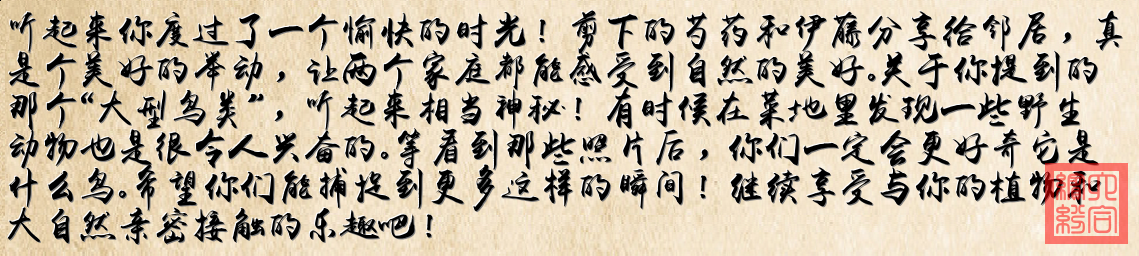 听起来你度过了一个愉快的时光！剪下的芍药和伊藤分享给邻居，真
是个美好的举动，让两个家庭都能感受到自然的美好。关于你提到的
那个“大型鸟类”，听起来相当神秘！有时候在菜地里发现一些野生
动物也是很令人兴奋的。等看到那些照片后，你们一定会更好奇它是
什么鸟。希望你们能捕捉到更多这样的瞬间！继续享受与你的植物和
大自然亲密接触的乐趣吧！